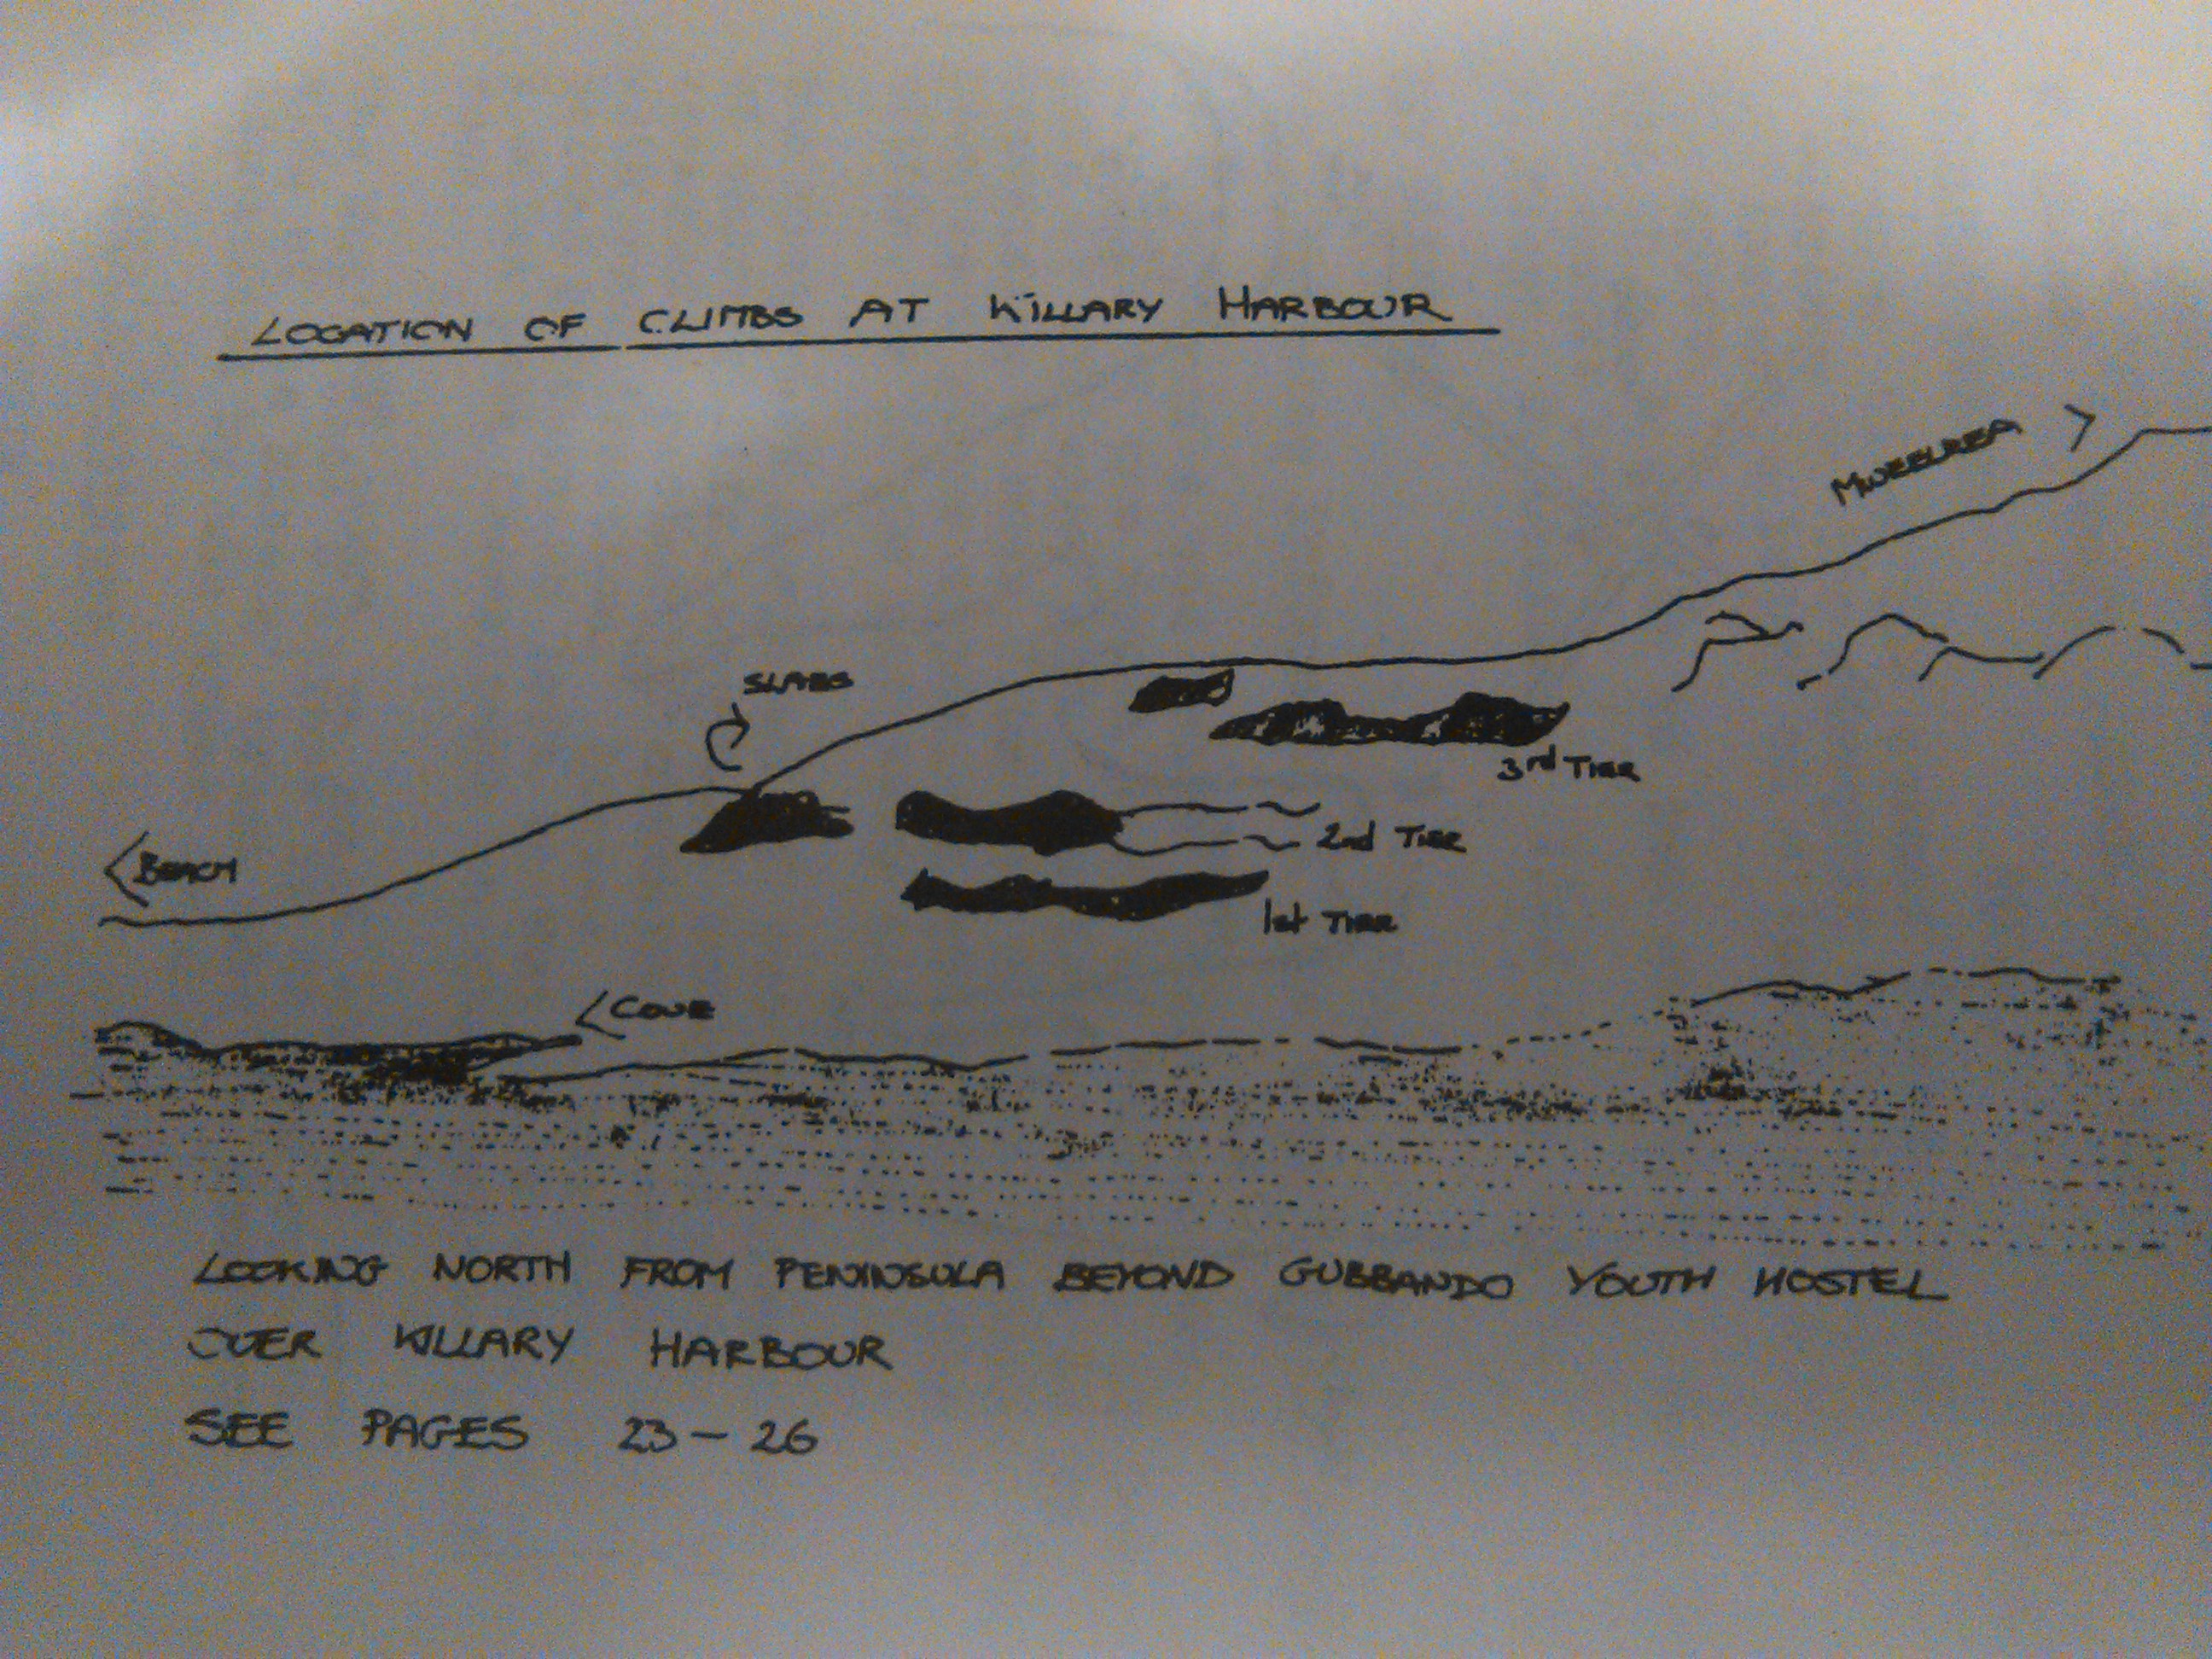 LOCATION OF CLIMBS AT KILLARY HARBOUR
MWEELREA >
SLABS
3rd TIER
2nd TIER
< BEACH
1st TIER
< COVE
LOOKING NORTH FROM PENINSULA BEYOND GUBBANDO YOUTH HOSTEL
OVER KILLARY HARBOUR
SEE PAGES 23 - 26